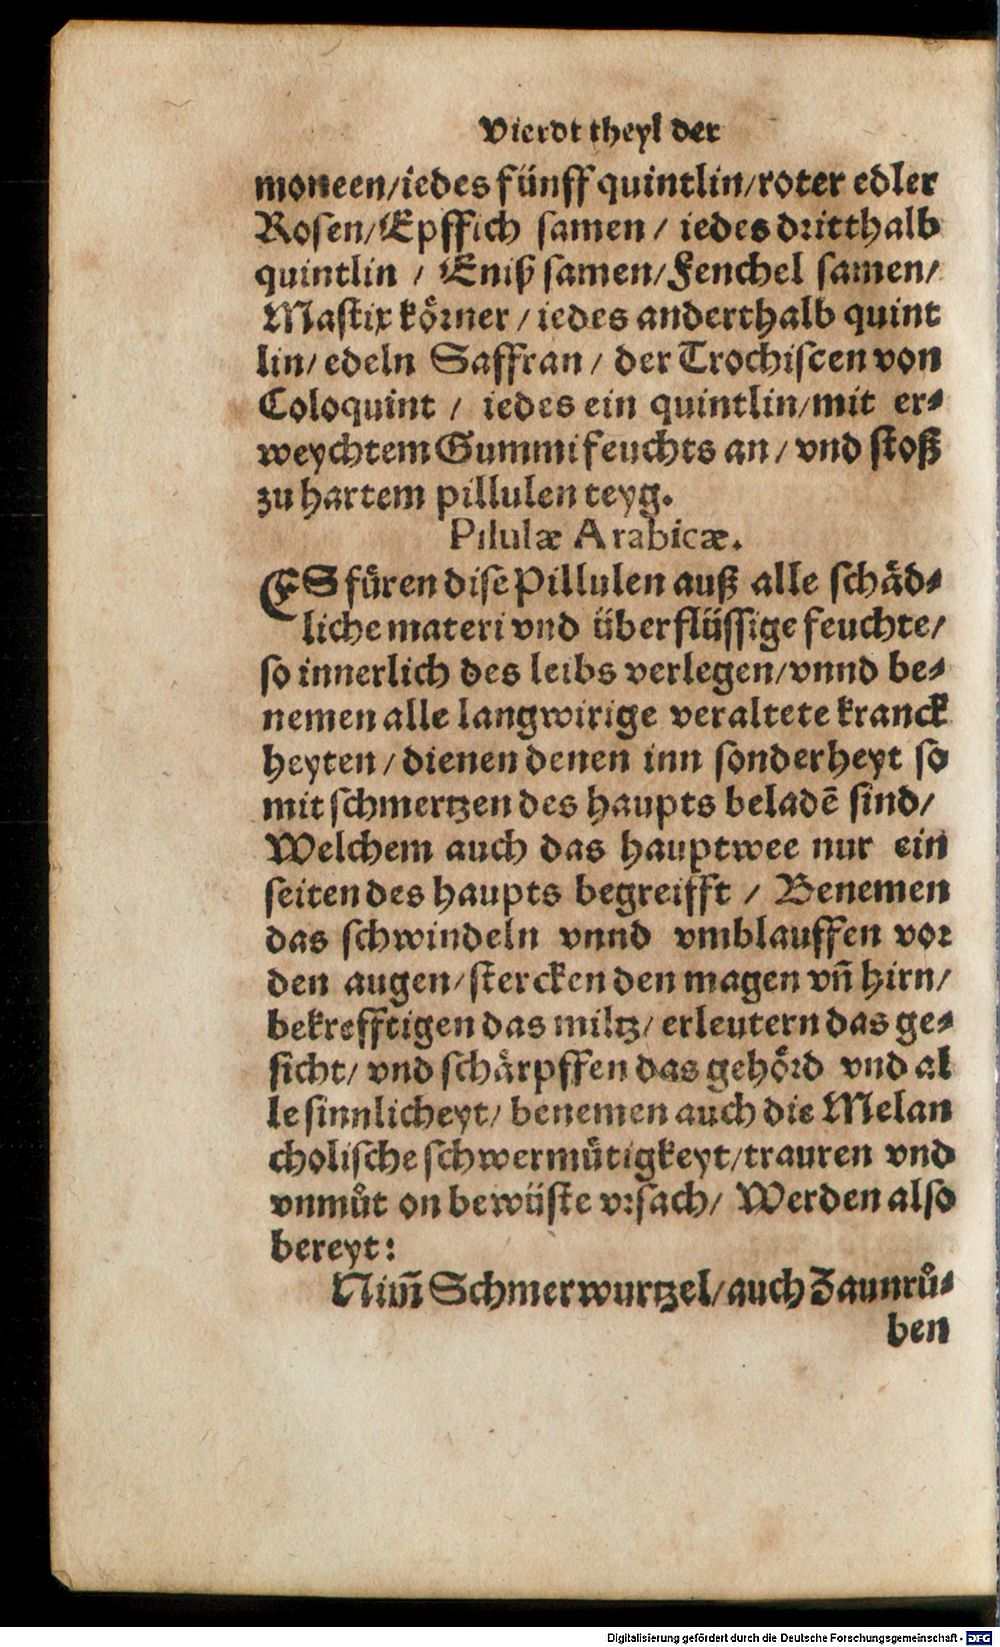 Vierdt theyl der
moneen/iedes fünff quintlin/roter edler
Rosen/Epffich samen / iedes dritthalb
quintlin / Eniß samen/Fenchel samen/
Mastix koͤrner / iedes anderthalb quint
lin/ edeln Saffran / der Trochiscen von
Coloquint / iedes ein quintlin/mit er⸗
weychtem Gummi feuchts an / vnd stoß
zu hartem pillulen teyg.
Pilulæ Arabicæ.
ES fuͤren dise Pillulen auß alle schaͤd⸗
liche materi vnd überflüssige feuchte/
so innerlich des leibs verlegen/vnnd be⸗
nemen alle langwirige veraltete kranck
heyten / dienen denen inn sonderheyt so
mit schmertzen des haupts beladē sind/
Welchem auch das hauptwee nur ein
seiten des haupts begreifft / Benemen
das schwindeln vnnd vmblauffen vor
den augen/stercken den magen vn̄ hirn/
bekrefftigen das miltz/ erleutern das ge⸗
sicht/ vnd schaͤrpffen das gehoͤrd vnd al
le sinnlicheyt/ benemen auch die Melan
cholische schwermuͤtigkeyt/trauren vnd
vnmuͦt on bewüste vrsach/ Werden also
bereyt:
Nim̄ Schmerwurtzel/auch Zaunruͦ⸗
ben
Digitalisierung gefördert durch die Deutsche Forschungsgemeinschaft - DFG